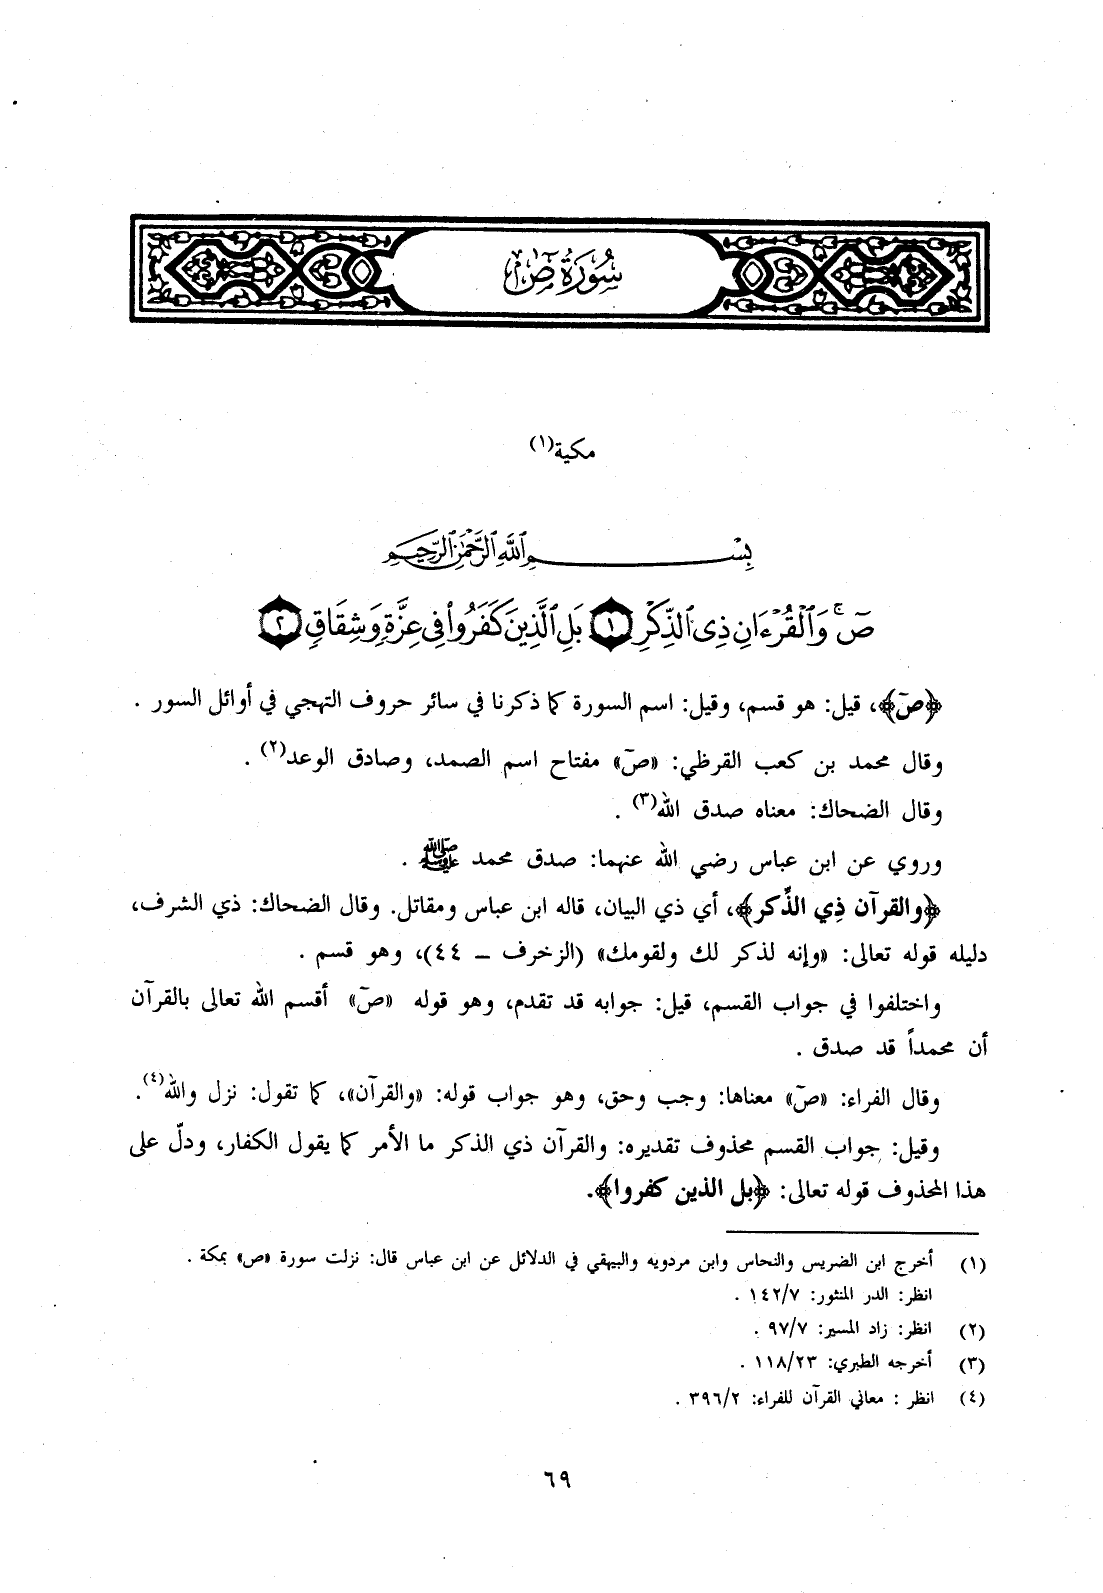 سُورَةُ صٓ
مكية(١)
بِسْمِ اللَّهِ الرَّحْمَٰنِ الرَّحِيمِ
صٓ ۚ وَٱلْقُرْءَانِ ذِى ٱلذِّكْرِ ١ بَلِ ٱلَّذِينَ كَفَرُوا۟ فِى عِزَّةٍ وَشِقَاقٍ ٢
﴿صٓ﴾، قيل: هو قسم، وقيل: اسم السورة كما ذكرنا في سائر حروف التهجي في أوائل السور .
وقال محمد بن كعب القرظي: «صٓ» مفتاح اسم الصمد، وصادق الوعد(٢) .
وقال الضحاك: معناه صدق الله(٣) .
وروي عن ابن عباس رضي الله عنهما: صدق محمد ﷺ .
﴿والقرآن ذِي الذِّكر﴾، أي ذي البيان، قاله ابن عباس ومقاتل. وقال الضحاك: ذي الشرف،
دليله قوله تعالى: «وإنه لذكر لك ولقومك» (الزخرف – ٤٤)، وهو قسم .
واختلفوا في جواب القسم، قيل: جوابه قد تقدم، وهو قوله «صٓ» أقسم الله تعالى بالقرآن
أن محمداً قد صدق .
وقال الفراء: «صٓ» معناها: وجب وحق، وهو جواب قوله: «والقرآن»، كما تقول: نزل والله(٤).
وقيل: جواب القسم محذوف تقديره: والقرآن ذي الذكر ما الأمر كما يقول الكفار، ودلّ على
هذا المحذوف قوله تعالى: ﴿بل الذين كفروا﴾.
(١) أخرج ابن الضريس والنحاس وابن مردويه والبيهقي في الدلائل عن ابن عباس قال: نزلت سورة «ص» بمكة .
انظر: الدر المنثور: ١٤٢/٧ .
(٢) انظر: زاد المسير: ٩٧/٧ .
(٣) أخرجه الطبري: ١١٨/٢٣ .
(٤) انظر : معاني القرآن للفراء: ٣٩٦/٢ .
٦٩